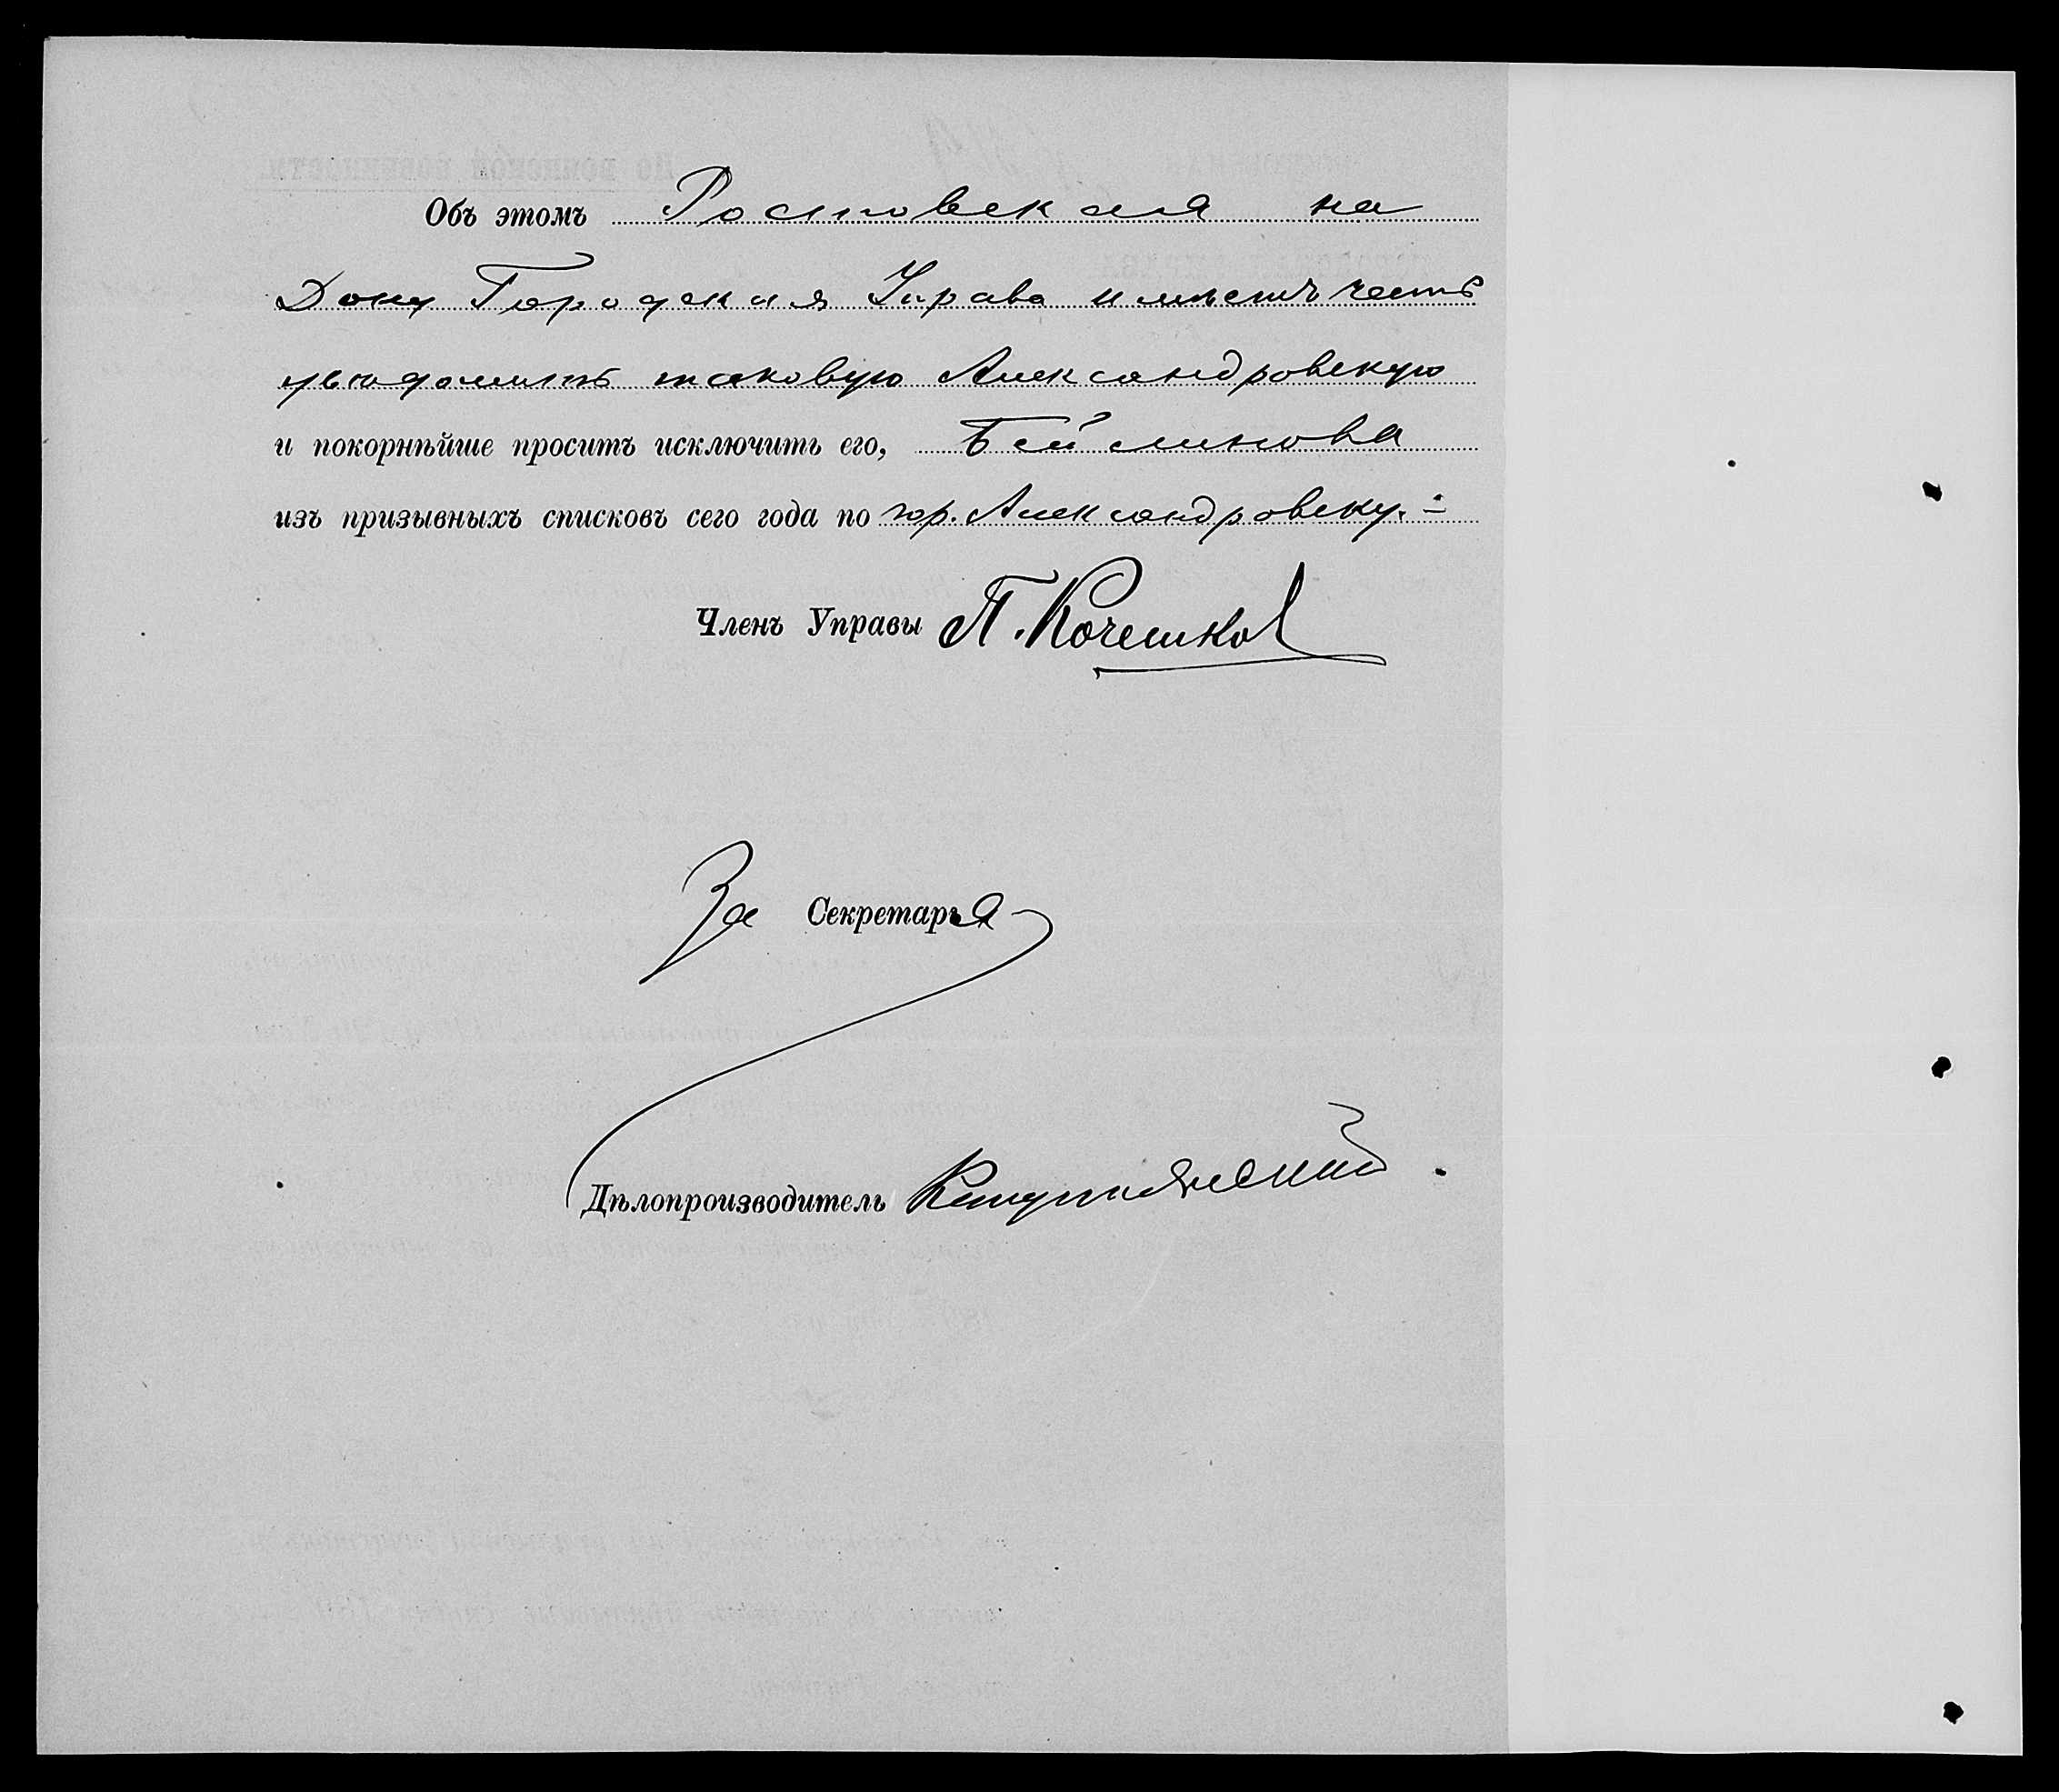 Объ этомъ Ростовская на
Дону Городская Управа имѣетъ честь
увѣдомить таковую Александровскую
и покорнѣйше просить исключить его, Беймнова
изъ призывныхъ списковъ сего года по гор. Александровску.
Членъ Управы П. Кочешков
За Секретаря
Дѣлопроизводитель